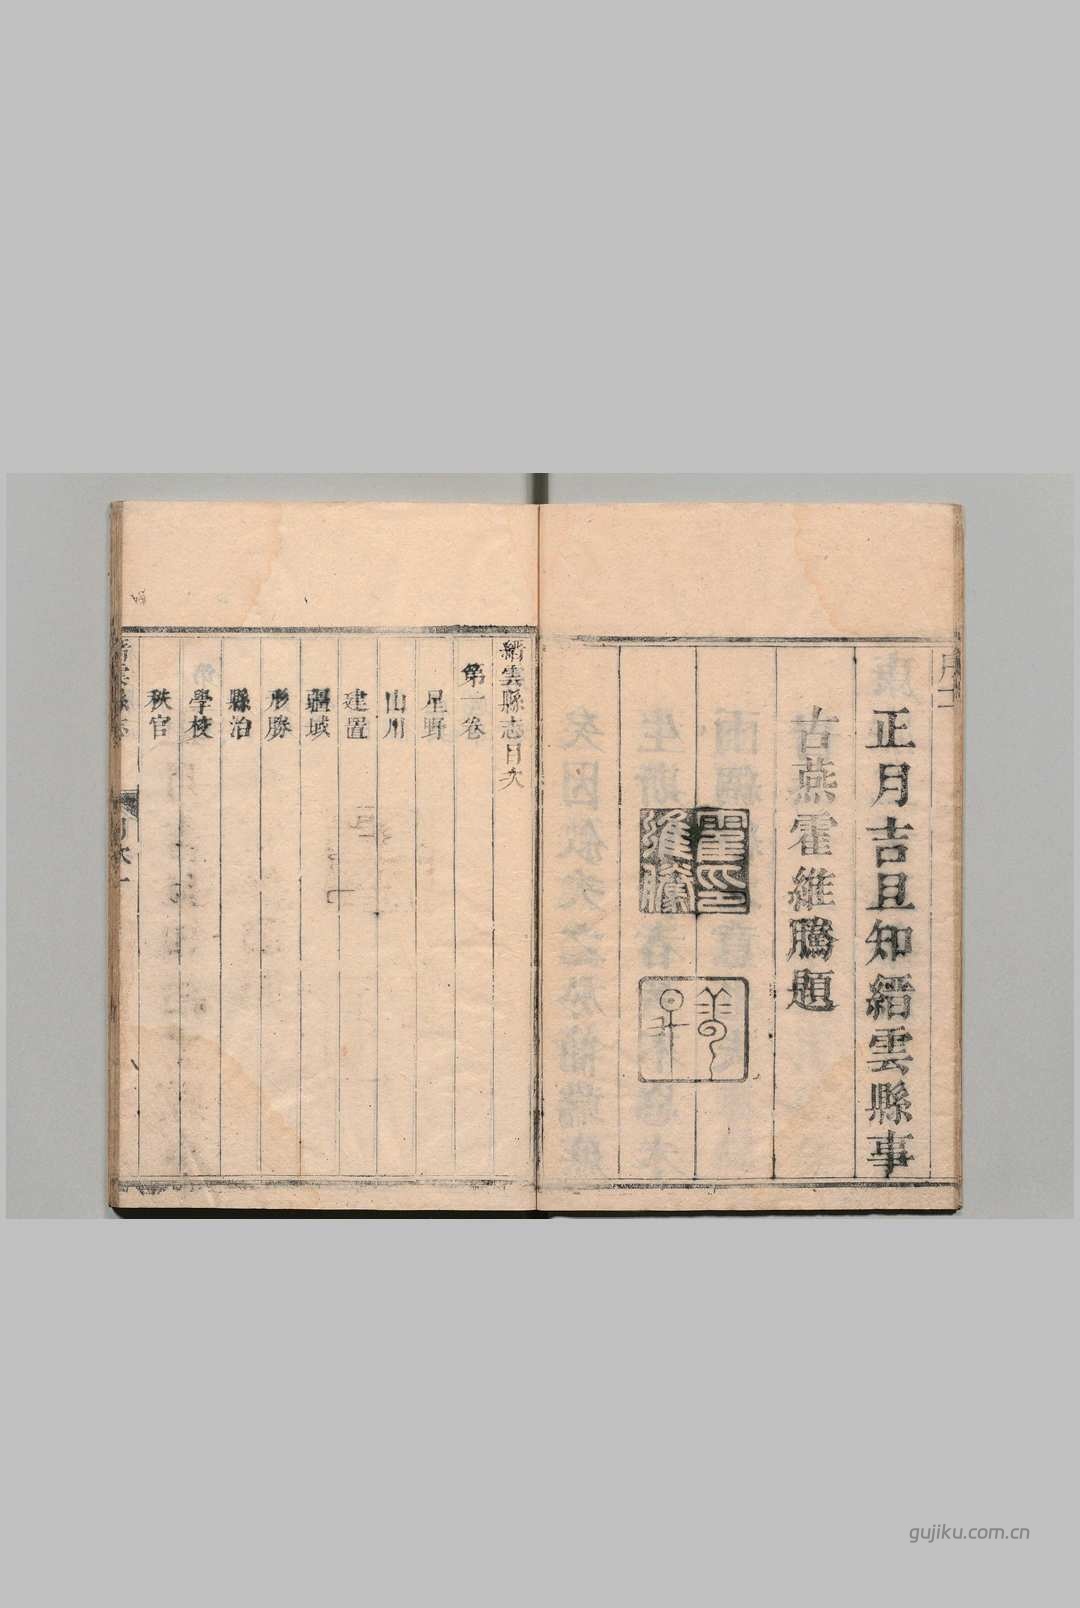 正月吉旦知縉雲縣事
古燕霍維騰題
霍印
維騰
縉雲縣志目次
第一卷
星野
山川
建置
疆域
形勝
縣治
學校
秩官
縉雲縣志
目次一
gujiku.com.cn